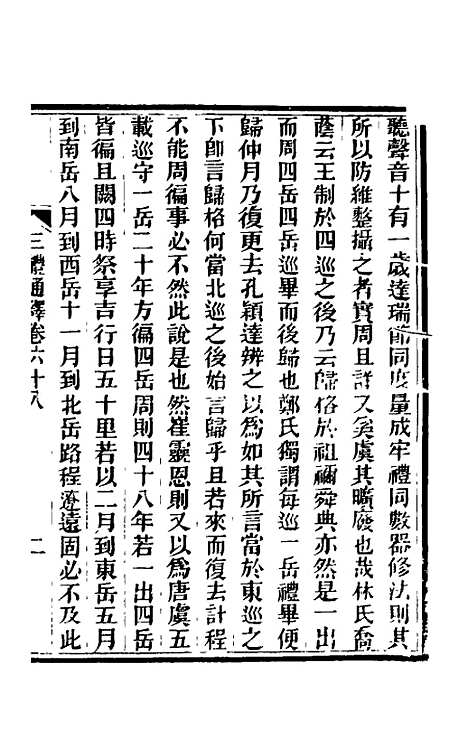 聽聲音十有一歲達瑞節同度量成牢禮同數器修法則其
所以防維整攝之者實周且詳又奚虞其曠廢也哉林氏喬
蔭云王制於四巡之後乃云歸格於祖禰舜典亦然是一出
而周四岳四岳巡畢而後歸也鄭氏獨謂每巡一岳禮畢便
歸仲月乃復更去孔穎達辨之以為如其所言當於東巡之
下卽言歸格何當北巡之後始言歸乎且若來而復去計程
不能周徧事必不然此說是也然崔靈恩則又以為唐虞五
載巡守一岳二十年方徧四岳周則四十八年若一出四岳
皆徧且闕四時祭享吉行日五十里若以二月到東岳五月
到南岳八月到西岳十一月到北岳路程遼遠固必不及此
三禮通釋卷六十八
二